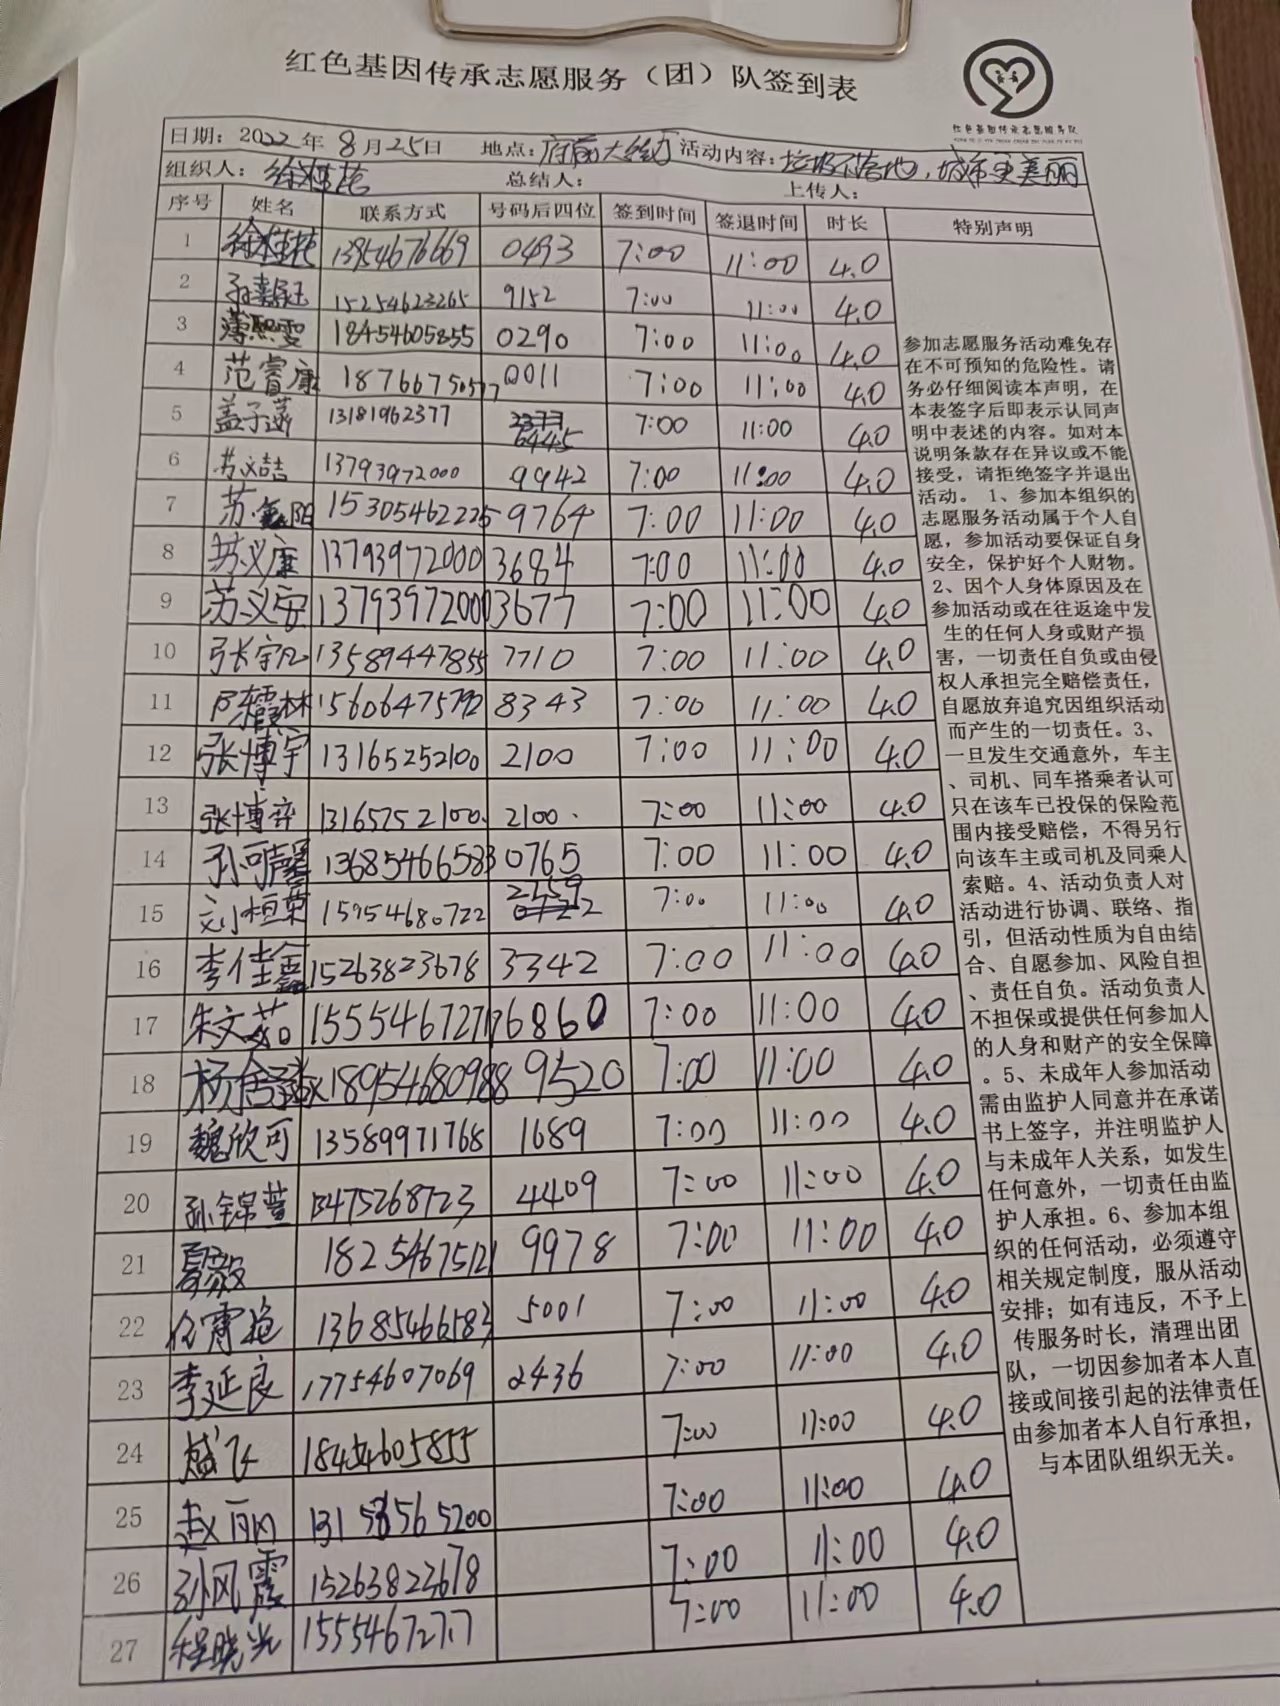 红色基因传承志愿服务（团）队签到表
红色基因传承志愿服务队
日期：2022年8月25日 地点：府前大街 活动内容：垃圾不落地，城市更美丽
组织人：徐桂花 总结人： 上传人：
序号 姓名 联系方式 号码后四位 签到时间 签退时间 时长 特别声明
1 徐桂花 13954676669 0493 7:00 11:00 4.0
2 15254623265 9152 7:00 11:00 4.0
3 薄熙雯 18454605855 0290 7:00 11:00 4.0
4 范睿康 18766750577 0011 7:00 11:00 4.0
5 盖子涵 13181962377 6445 7:00 11:00 4.0
6 苏文喆 13793972000 9942 7:00 11:00 4.0
7 苏 阳 15305462225 9764 7:00 11:00 4.0
8 苏义康 13793972000 3684 7:00 11:00 4.0
9 苏义安 13793972000 3677 7:00 11:00 4.0
10 张宇凡 13589447855 7710 7:00 11:00 4.0
11 陈霞林 15606475792 8343 7:00 11:00 4.0
12 张博宇 13165252100 2100 7:00 11:00 4.0
13 张博弈 13165252100. 2100. 7:00 11:00 4.0
14 孙可馨 13685466583 0765 7:00 11:00 4.0
15 刘桓菓 15954680722 2359 7:00 11:00 4.0
16 李佳鑫 15263823678 3342 7:00 11:00 4.0
17 朱文茹 15554672717 6860 7:00 11:00 4.0
18 杨舒涵 18954680988 9520 7:00 11:00 4.0
19 魏欣可 13589971768 1689 7:00 11:00 4.0
20 孙锦萱 13475268723 4409 7:00 11:00 4.0
21 夏毅 18254675121 9978 7:00 11:00 4.0
22 任霄艳 13685466583 5001 7:00 11:00 4.0
23 李延良 17754607069 2436 7:00 11:00 4.0
24 盛飞 18454605855 7:00 11:00 4.0
25 赵丽 13158565200 7:00 11:00 4.0
26 孙风霞 15263823678 7:00 11:00 4.0
27 程晓光 15554672717 7:00 11:00 4.0
参加志愿服务活动难免存
在不可预知的危险性。请
务必仔细阅读本声明，在
本表签字后即表示认同声
明中表述的内容。如对本
说明条款存在异议或不能
接受，请拒绝签字并退出
活动。 1、参加本组织的
志愿服务活动属于个人自
愿，参加活动要保证自身
安全，保护好个人财物。
2、因个人身体原因及在
参加活动或在往返途中发
生的任何人身或财产损
害，一切责任自负或由侵
权人承担完全赔偿责任，
自愿放弃追究因组织活动
而产生的一切责任。3、
一旦发生交通意外，车主
、司机、同车搭乘者认可
只在该车已投保的保险范
围内接受赔偿，不得另行
向该车主或司机及同乘人
索赔。4、活动负责人对
活动进行协调、联络、指
引，但活动性质为自由结
合、自愿参加、风险自担
、责任自负。活动负责人
不担保或提供任何参加人
的人身和财产的安全保障
。5、未成年人参加活动
需由监护人同意并在承诺
书上签字，并注明监护人
与未成年人关系，如发生
任何意外，一切责任由监
护人承担。6、参加本组
织的任何活动，必须遵守
相关规定制度，服从活动
安排；如有违反，不予上
传服务时长，清理出团
队，一切因参加者本人直
接或间接引起的法律责任
由参加者本人自行承担，
与本团队组织无关。